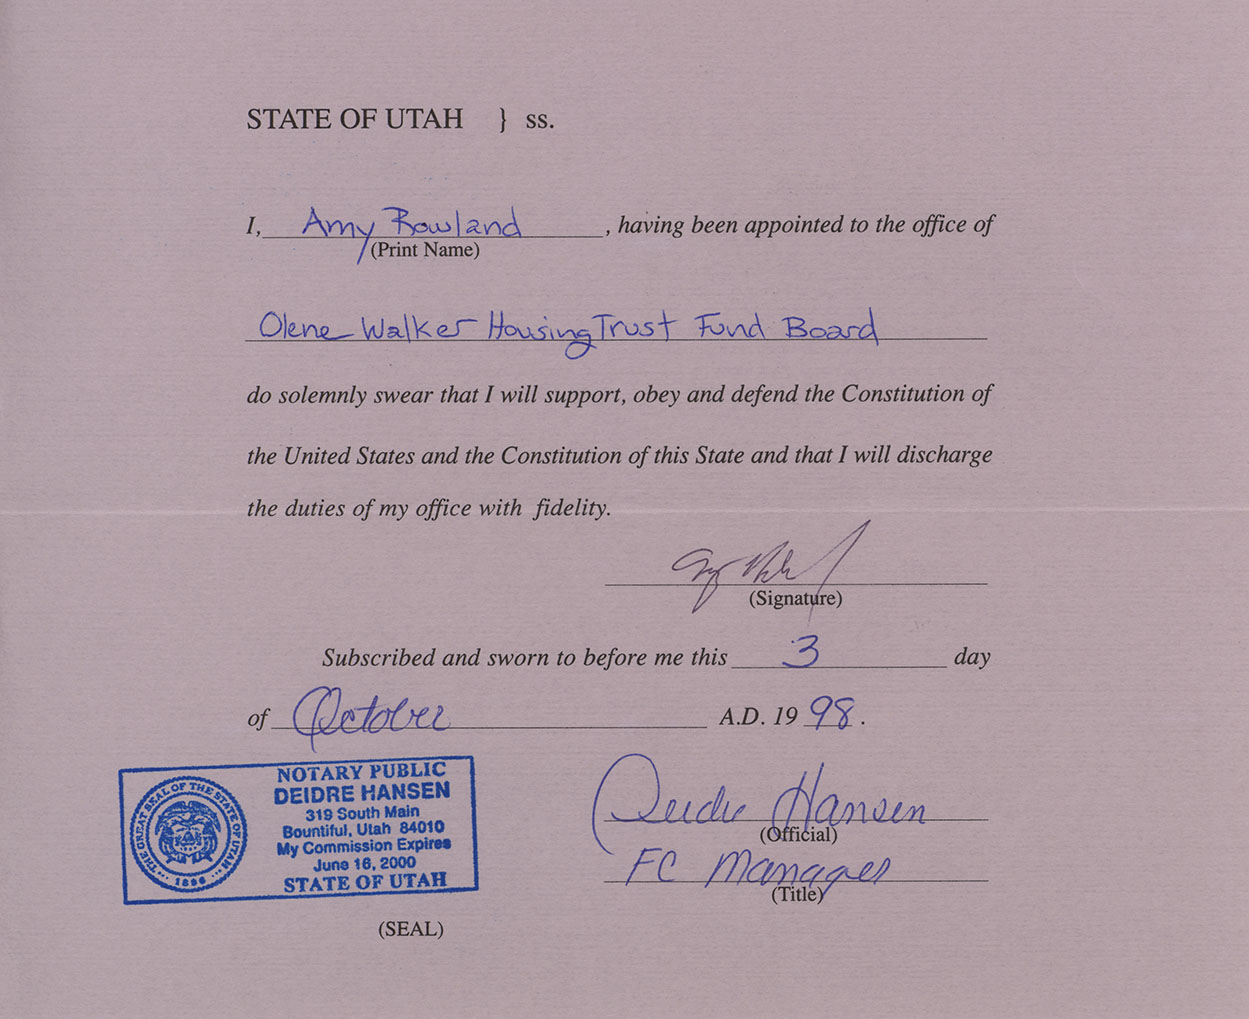 STATE OF UTAH } ss.
I, Amy Rowland, having been appointed to the office of
(Print Name)
Olene Walker Housing Trust Fund Board
do solemnly swear that I will support, obey and defend the Constitution of
the United States and the Constitution of this State and that I will discharge
the duties of my office with fidelity.
(Signature)
Subscribed and sworn to before me this 3 day
of October A.D. 19 98.
NOTARY PUBLIC
DEIDRE HANSEN
319 South Main
Bountiful, Utah 84010
My Commission Expires
June 16, 2000
STATE OF UTAH
THE GREAT SEAL OF THE STATE OF UTAH
1896
Deidre Hansen
(Official)
FC Manager
(Title)
(SEAL)